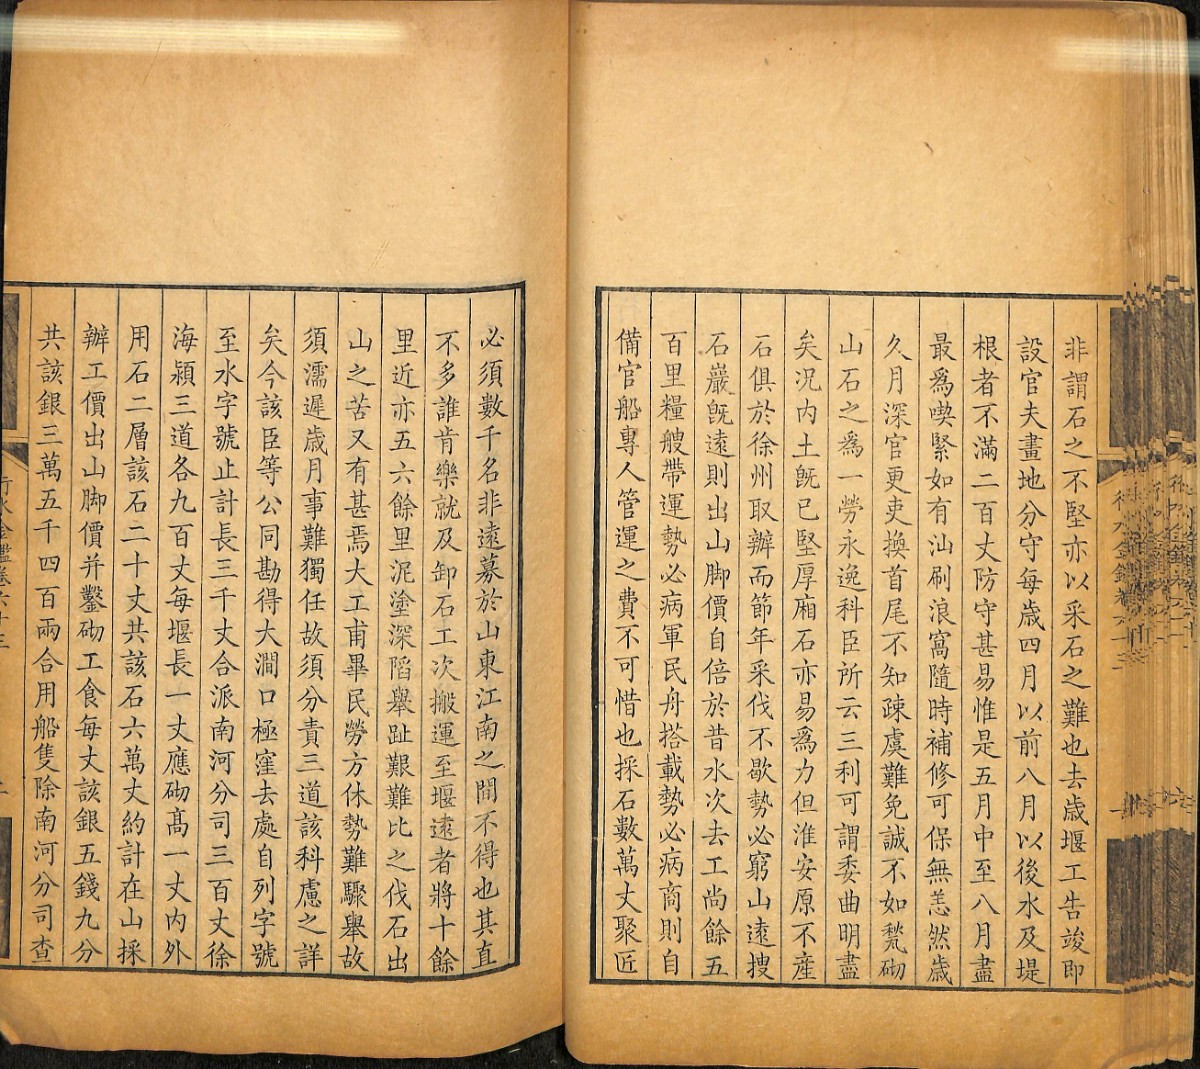 非謂石之不堅亦以采石之難也去歳堰工告竣即
設官夫畫地分守每歳四月以前八月以後水及堤
根者不滿二百丈防守甚易惟是五月中至八月盡
最爲喫緊如有汕刷浪窩隨時補修可保無恙然歳
久月深官更吏換首尾不知疎虞難免誠不如甃砌
山石之爲一勞永逸科臣所云三利可謂委曲明盡
矣况内土旣已堅厚廂石亦易爲力但淮安原不產
石俱於徐州取辦而節年采伐不歇勢必窮山遠搜
石巖旣遠則出山脚價自倍於昔水次去工尚餘五
百里糧艘帶運勢必病軍民舟搭載勢必病商則自
備官船專人管運之費不可惜也採石數萬丈聚匠
必須數千名非遠募於山東江南之間不得也其直
不多誰肯樂就及卸石工次搬運至堰遠者將十餘
里近亦五六餘里泥塗深陷舉趾艱難比之伐石出
山之苦又有甚焉大工甫畢民勞方休勢難驟舉故
須濡遲歳月事難獨任故須分責三道該科慮之詳
矣今該臣等公同勘得大澗口極窪去處自列字號
至水字號止計長三千丈合派南河分司三百丈徐
海潁三道各九百丈每堰長一丈應砌髙一丈内外
用石二層該石二十丈共該石六萬丈約計在山採
辦工價出山脚價并鑿砌工食每丈該銀五錢九分
共該銀三萬五千四百兩合用船隻除南河分司查
行水金鑑卷六十三